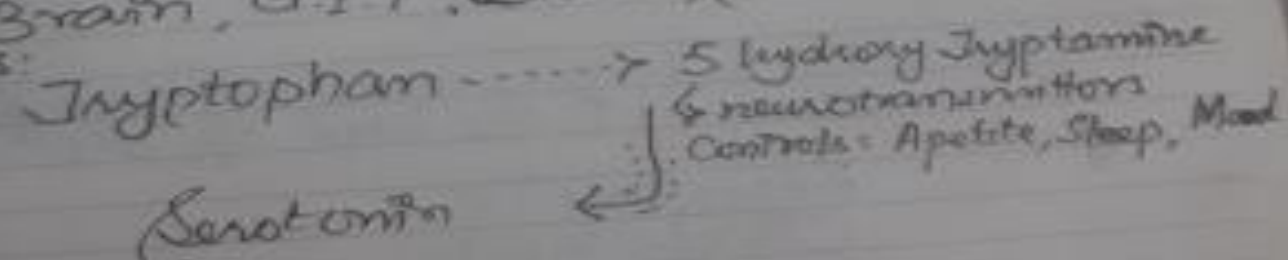 Brain, G.I.T.
Tryptophan -----> 5 hydroxy Tryptamine
↳ neurotransmittors
Controls: Apetite, Sleep, Mood
Serotonin